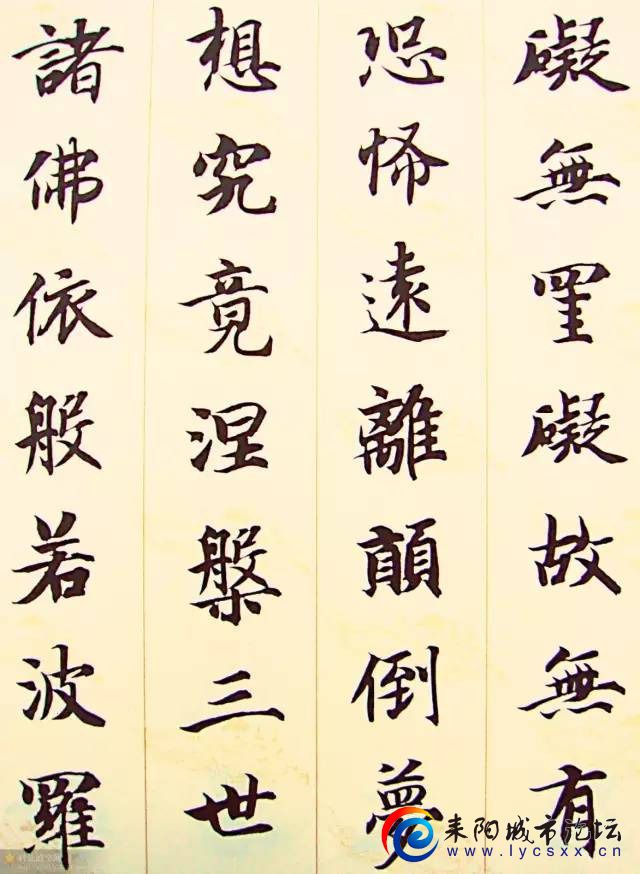 礙無罣礙故無有
恐怖遠離顛倒夢
想究竟涅槃三世
諸佛依般若波羅
耒阳城市论坛
www.lycsxx.cn